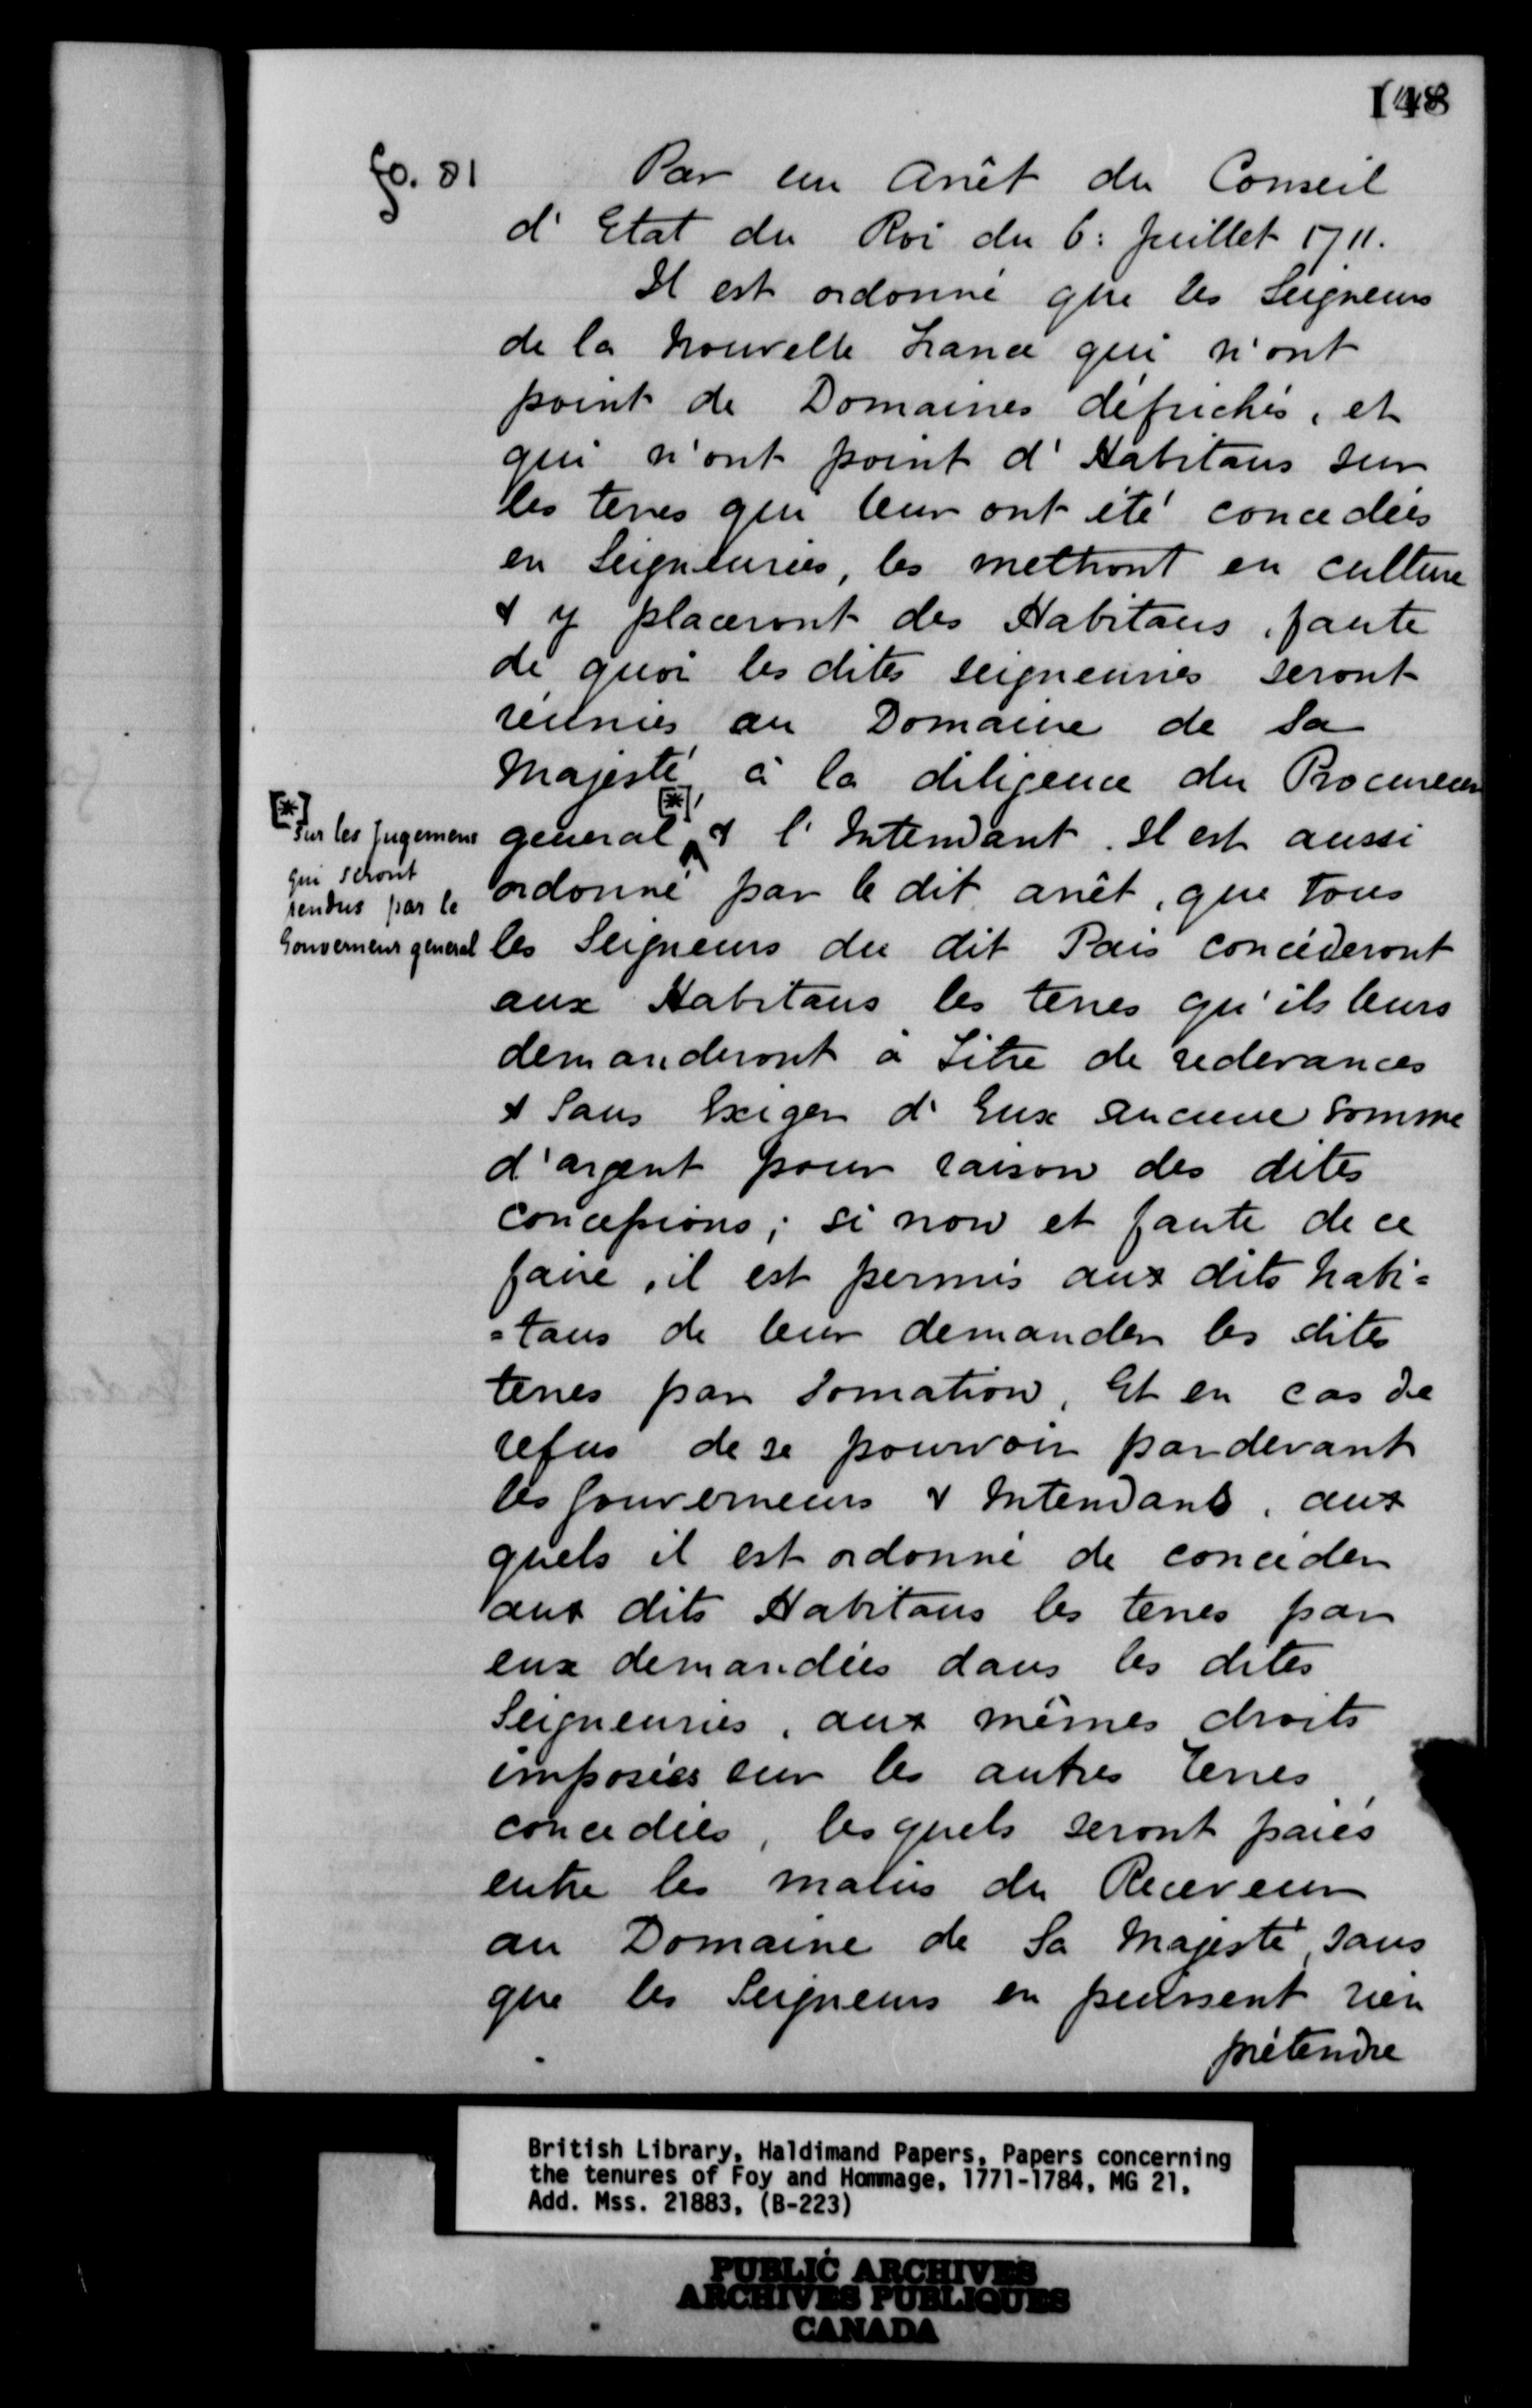 148
fo. 81
Par un Arrêt du Conseil
d'Etat du Roi du 6: Juillet 1711.
Il est ordonné que les Seigneurs
de la Nouvelle France qui n'ont
point de Domaines défrichés, et
qui n'ont point d'Habitans sur
les terres qui leur ont été concedées
en Seigneuries, les mettront en culture
& y placeront des Habitans, faute
de quoi les dites seigneuries seront
réunies au Domaine de Sa
Majesté à la diligence du Procureur
general [*] & l'Intendant. Il est aussi
[*] Sur les Jugemens
qui seront
rendus par le
Gouverneur general
ordonné par le dit arrêt, que tous
les Seigneurs du dit Païs concéderont
aux Habitans les terres qu'ils leurs
demanderont à Titre de redevances
& Sans Exiger d'Eux aucune somme
d'argent pour raison des dites
concessions; si non et faute de ce
faire, il est permis aux dits habi=
=tans de leur demander les dites
terres par Somation, Et en cas de
refus de se pourvoir pardevant
les Gouverneurs & Intendants, aux
quels il est ordonné de concéder
aux dits Habitans les terres par
eux demandées dans les dites
Seigneuries, aux mêmes droits
imposées sur les autres Terres
concedées, lesquels seront paiés
entre les mains du Receveur
au Domaine de Sa Majesté, sans
que les Seigneurs en puissent rien
prétendre
British Library, Haldimand Papers, Papers concerning
the tenures of Foy and Hommage, 1771-1784, MG 21,
Add. Mss. 21883, (B-223)
PUBLIC ARCHIVES
ARCHIVES PUBLIQUES
CANADA